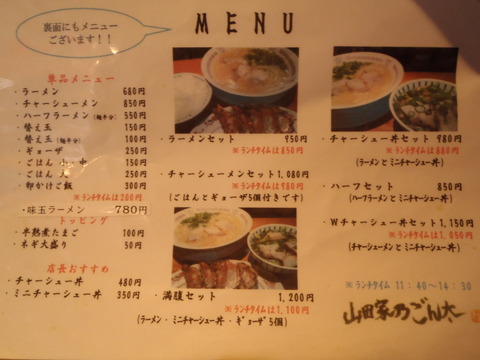 裏面にもメニュー
ございます！！
MENU
単品メニュー
・ラーメン 680円
・チャーシューメン 850円
・ハーフラーメン 550円
・替え玉 150円
・替え玉（麺半分） 100円
・ギョーザ 250円
・ごはん 小・中 150円
・ごはん 大 250円
・卵かけご飯 300円
※ランチタイムは200円
・味玉ラーメン 780円
トッピング
・半熟煮たまご 100円
・ネギ大盛り 50円
店長おすすめ
・チャーシュー丼 480円
・ミニチャーシュー丼 350円
・ラーメンセット 950円
※ランチタイムは850円
・チャーシューメンセット 1,080円
※ランチタイムは980円
（ごはんとギョーザ5個付きです）
・満腹セット 1,200円
※ランチタイムは1,100円
（ラーメン・ミニチャーシュー丼・ギョーザ5個）
・チャーシュー丼セット 980円
※ランチタイムは880円
（ラーメンとミニチャーシュー丼）
・ハーフセット 850円
（ハーフラーメンとミニチャーシュー丼）
・Wチャーシュー丼セット 1,150円
※ランチタイムは1,050円
（チャーシューメンとミニチャーシュー丼）
※ランチタイム 11:40～14:30
山田家乃ごん太